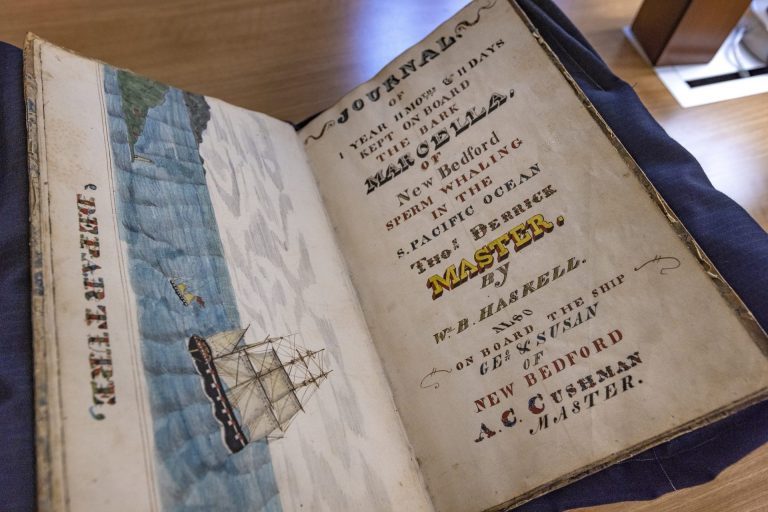 'DEPARTIRE,
JOURNAL.
OF
1 YEAR 11 MONS & 11 DAYS
KEPT ON BOARD
THE BARK
MARCELLA.
OF
New Bedford
SPERM WHALING
IN THE
S. PACIFIC OCEAN
THOS DERRICK
MASTER.
By
WM B. HASKELL.
ALSO
ON BOARD THE SHIP
GEO & SUSAN
OF
NEW BEDFORD
A. C. CUSHMAN
MASTER.